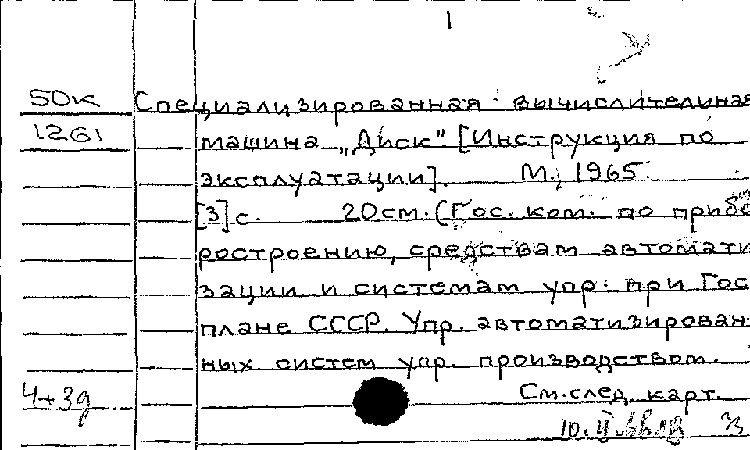 1
50К Специализированная вычислительная
1261 машина „Диск" [Инструкция по
эксплуатации]. М., 1965.
[3] с. 20см. (Гос. ком. по прибо
ростроению, средствам автомати
зации и системам упр. при Гос
плане СССР. Упр. автоматизирован-
ных систем упр. производством.
4+3д См. след. карт.
10. II.